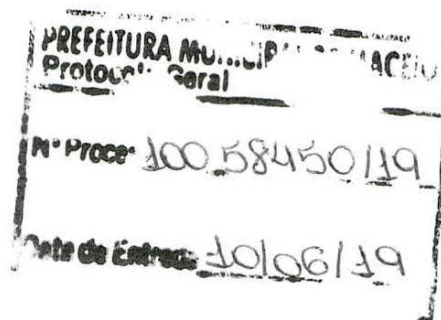 PREFEITURA MUNICIPAL DE MACEIÓ
Protocolo Geral
Nº Proce 100.58450/19
Data de Entrada 10/06/19